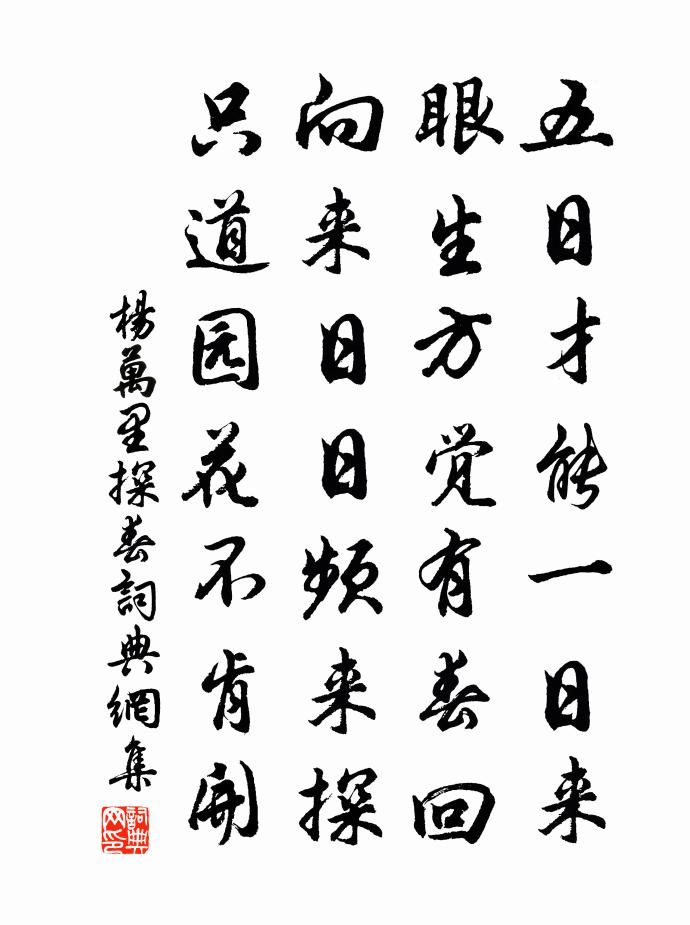 五日才能一日来
眼生方觉有春回
向来日日频来探
只道园花不肯開
楊萬里探春詞典網集
詞典网印